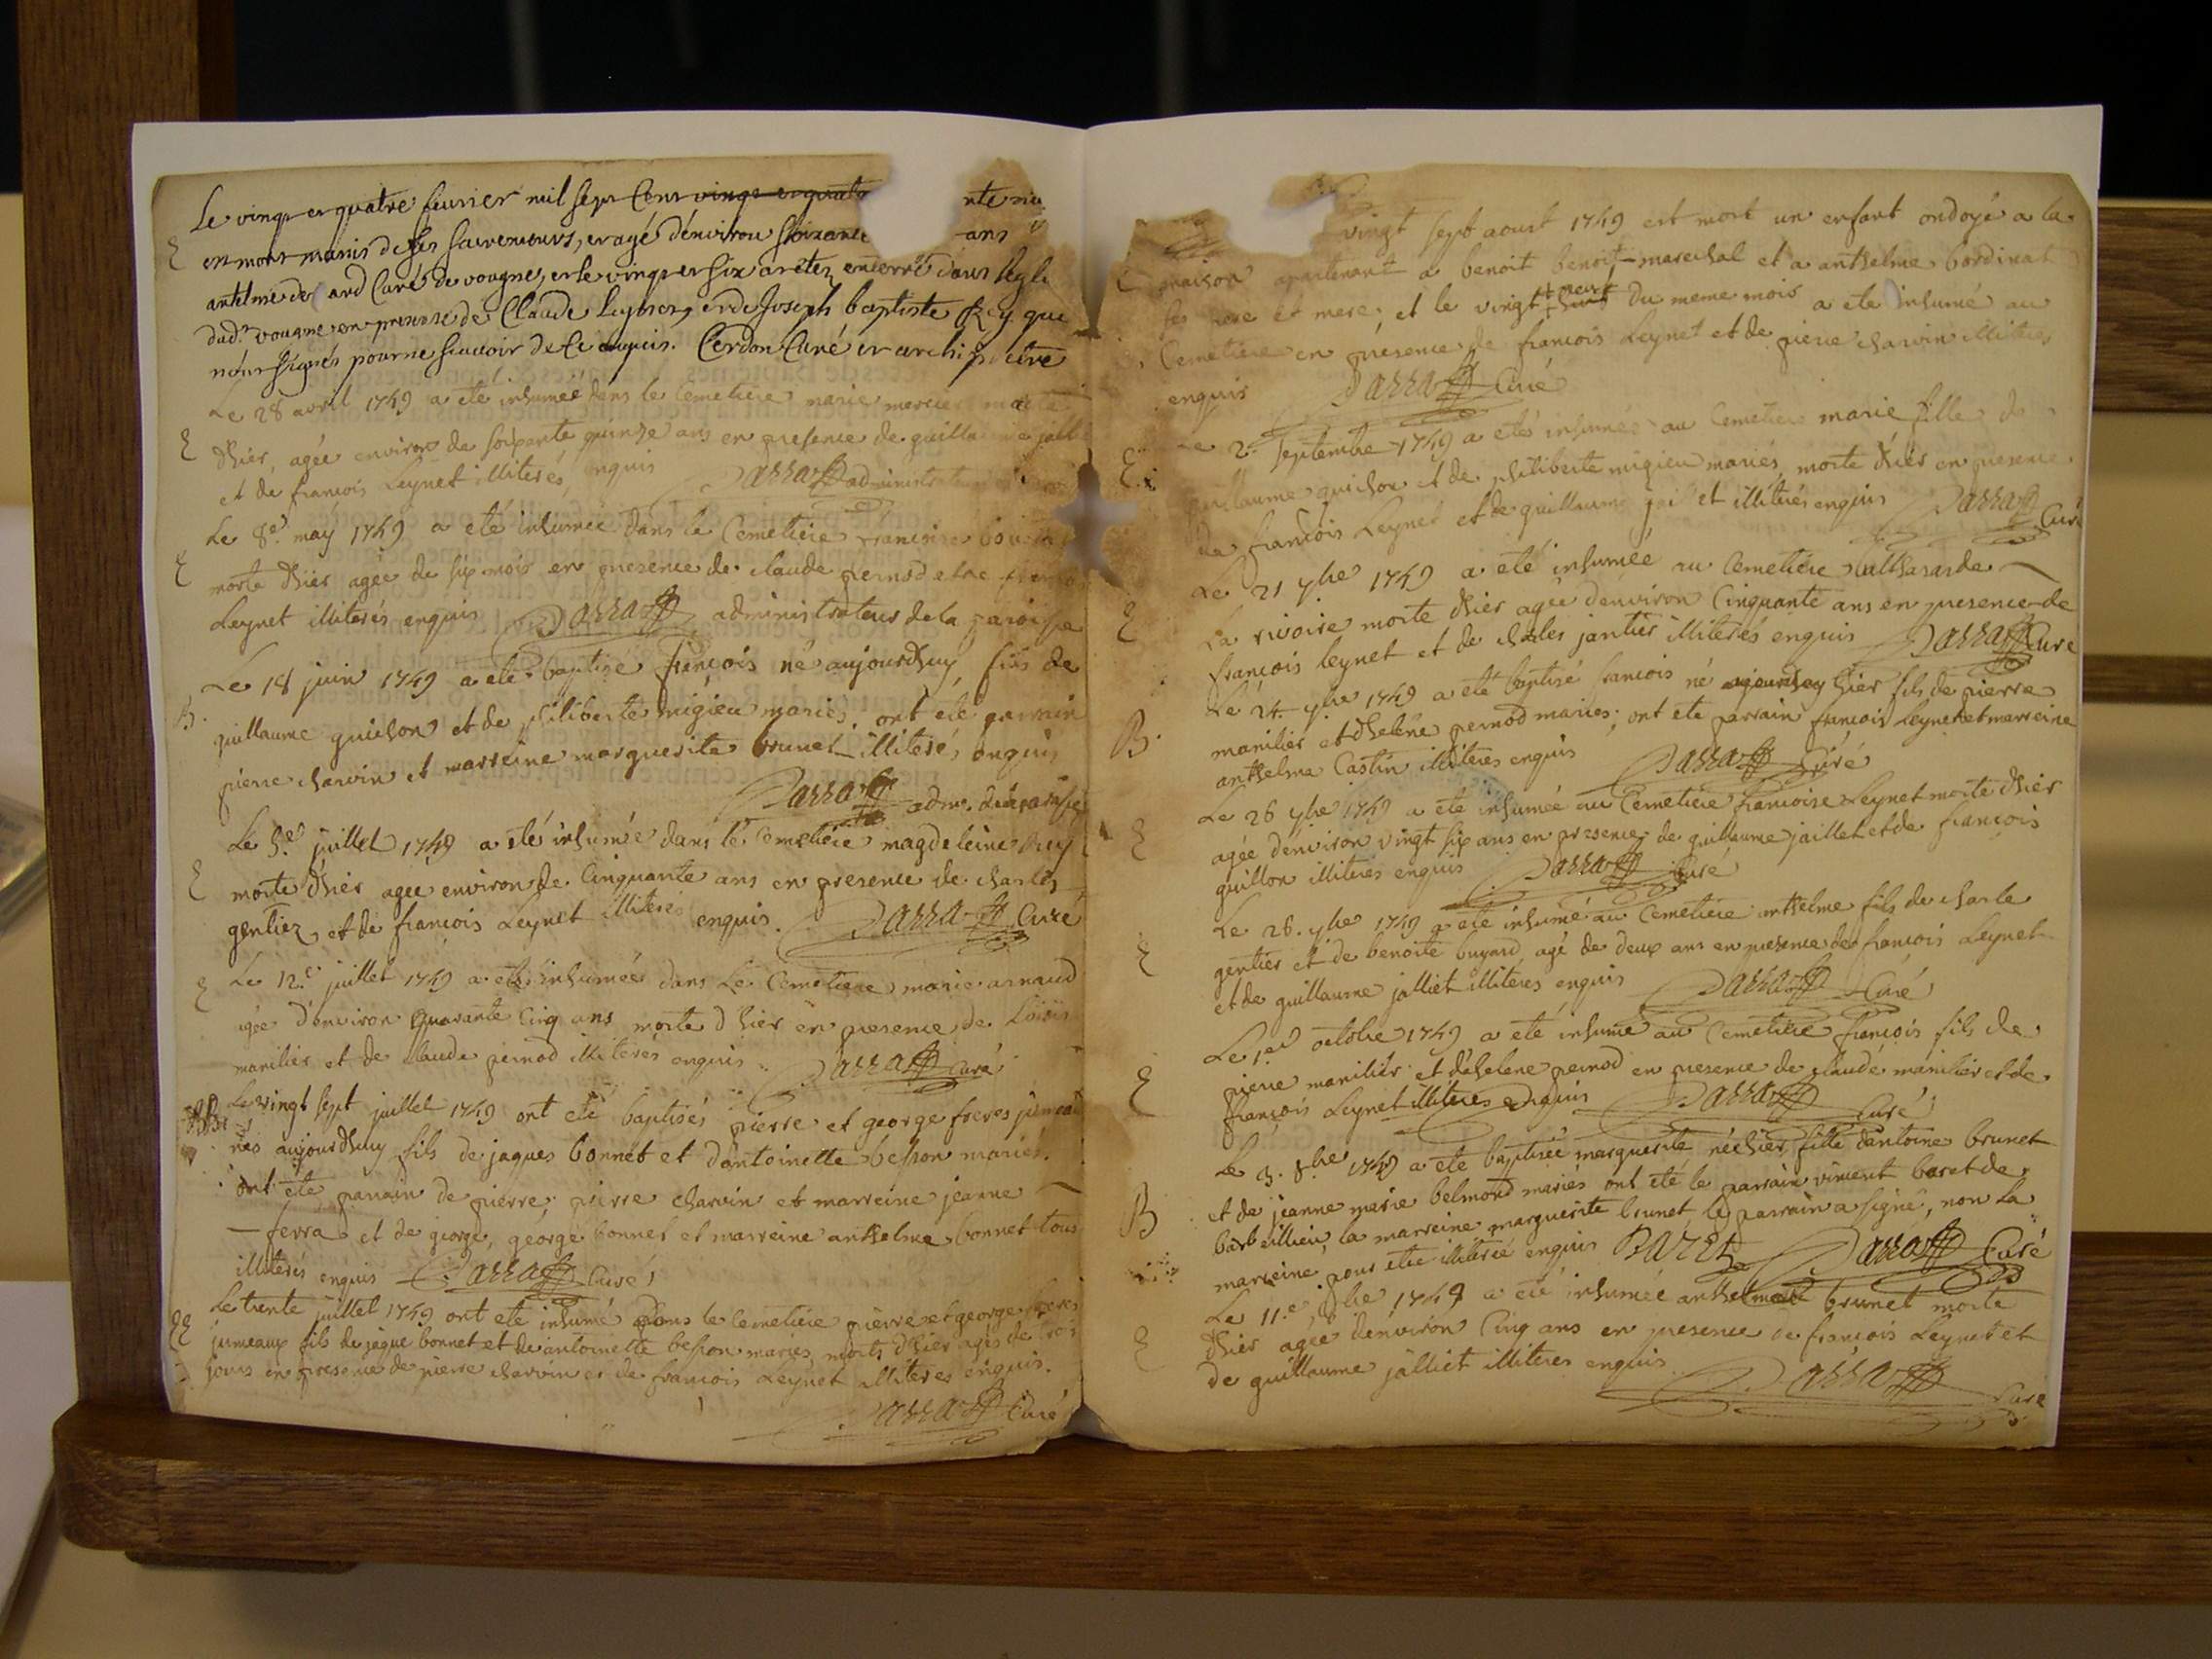 Le vingt et quatre feurier mil sept Cent vingt et quatr nte
E est mort munis de ses sacremens, et agé d'environ soixante ans
antelme de ard Curé de vougne, et le vingt et six a etez enterré dans legli
dud. vougne en presence de Claude et de Joseph baptiste Rey qui
nont signés pour ne scavoir de ce enquis. Cerdon Curé et archiprêtre
Le 28 avril 1749 a eté inhumée dans le Cemetiere marie mercier morte
E d'hier, agée environ de soixante quinze ans en presence de guillaume jall
et de francois Leynet illiterés, enquis Darra administrateur
Le 8e. may 1749 a eté inhumée dans le Cemetiere francoise
E morte d'hier agée de six mois en presence de claude pernod et de
Leynet illiterés enquis Darra administrateur de la paroisse
Le 18 juin 1749 a eté baptizé françois né aujourdhuy, fils de
B. guillaume guichon et de philiberte migieu mariés. ont eté parrain
pierre charvin et marreine marguerite brunet illiterés enquis
Darra adm. de la paroisse
Le 5e juillet 1749 a eté inhumée dans le Cemetiere magdeleine Rey
E morte d'hier agée environ de Cinquante ans en presence de charles
gentiez, et de françois Leynet illiteres enquis. Darra Curé
E Le 12.e juillet 1749 a eté inhumée dans Le Cemetiere marie arnaud
agée d'environ quarante Cinq ans morte d'hier en presence de Loüis
manilier et de claude pernod illiterés enquis. Darra Curé
BB Le vingt sept juillet 1749 ont eté baptisés pierre et george freres jumeau
nés aujourdhuy fils de jaques bonnet et d'antoinette besson mariés.
ont eté parrain de pierre, pierre charvin et marreine jeanne
ferra et de george, george bonnet et marreine anthelme bonnet tous
illiterés enquis Darra Curé
EE Le trente juillet 1749 ont eté inhumé dans le Cemetiere pierre et george freres
jumeaux fils de jaque bonnet et de antoinette besson mariés, morts d'hier agés de trois
jours en presence de pierre charvin et de francois Leynet illiteres enquis.
Darra Curé
vingt sept aoust 1749 est mort un enfant ondoyé a la
E maison apartenant a benoit benoit marechal et a anthelme bordinat
ses pere et mere; et le vingt neuf du meme mois a eté inhumé au
Cemetiere en presence de francois Leynet et de pierre charvin illiteres
enquis Darra Curé
Le 2. septembre 1749 a eté inhumée au Cemetiere marie fille de
E guillaume guichon et de philiberte migieu mariés, morte d'hier en presence
de francois Leynet et de guillaume et illiterés enquis Darra Curé
Le 21 7bre 1749 a eté inhumée au Cemetiere
E La rivoire morte d'hier agée d'environ Cinquante ans en presence de
françois leynet et de charles jantier illiterés enquis Darra Curé
Le 24. 7bre 1749 a eté baptisé francois né aujourdhuy hier fils de pierre
B. manilier et d'helene pernod mariés; ont eté parrain francois Leynet et marreine
anthelme Castin illiteres enquis Darra Curé
Le 26 7bre 1749 a eté inhumée au Cemetiere francoise Leynet morte d'hier
E agée d'environ vingt six ans en presence de guillaume jaillet et de françois
guillon illiteres enquis Darra Curé
Le 26. 7bre 1749 a eté inhumé au Cemetiere anthelme fils de charle
E gentier et de benoite buyard, agé de deux ans en presence de francois Leynet
et de guillaume jalliet illiteres enquis Darra Curé
Le 1er octobre 1749 a eté inhumé au Cemetiere françois fils de
E pierre manilier et d'helene pernod en presence de claude manilier et de
françois Leynet illiteres enquis Darra Curé
Le 3. 8bre 1749 a eté baptisée marguerite née hier, fille d'antoine brunet
B et de jeanne marie belmond mariés ont eté le parrain vincent baret de
barbeillieu, la marreine marguerite brunet, le parrain a signé, non la
marreine pour etre illiterée enquis BARET Darra Curé
Le 11.e 8bre 1749 a eté inhumée anthelme brunet morte
E d'hier agée d'environ Cinq ans en presence de francois Leynet et
de guillaume jalliet illiteres enquis
Darra Curé